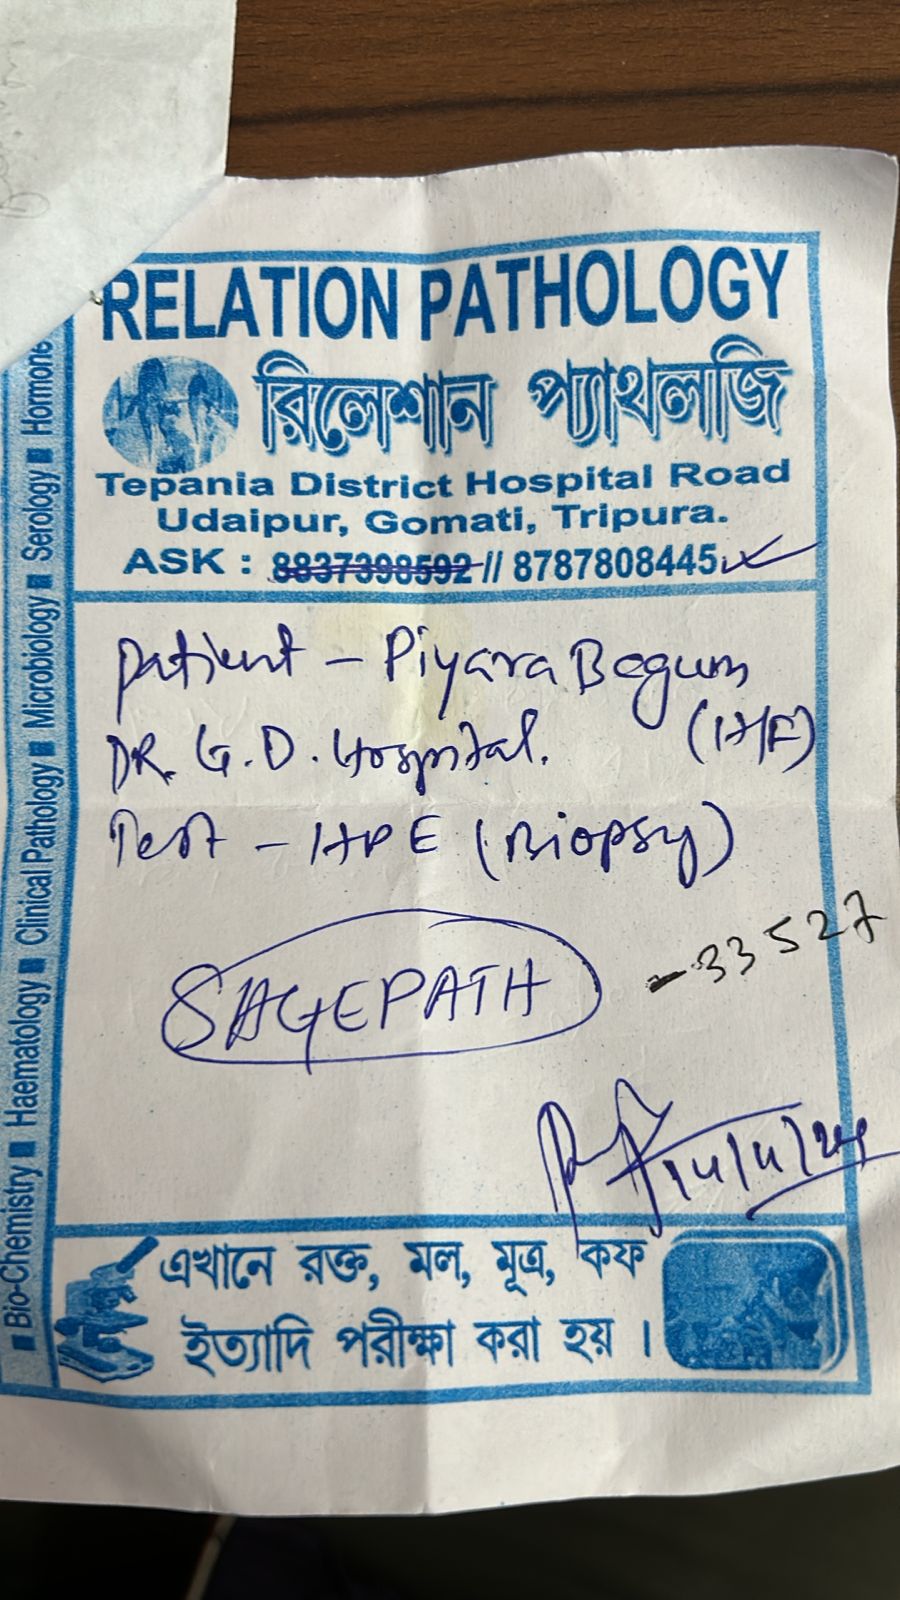 RELATION PATHOLOGY
রিলেশান প্যাথলজি
Tepania District Hospital Road
Udaipur, Gomati, Tripura.
ASK : 8837398592 // 8787808445
Patient - Piyara Begum
(17/F)
DR. G.D. Hospital.
Test - HPE (Biopsy)
SAGEPATH
-33527
14/4/24
এখানে রক্ত, মল, মূত্র, কফ
ইত্যাদি পরীক্ষা করা হয় ।
Bio-Chemistry ■ Haematology ■ Clinical Pathology ■ Microbiology ■ Serology ■ Hormone